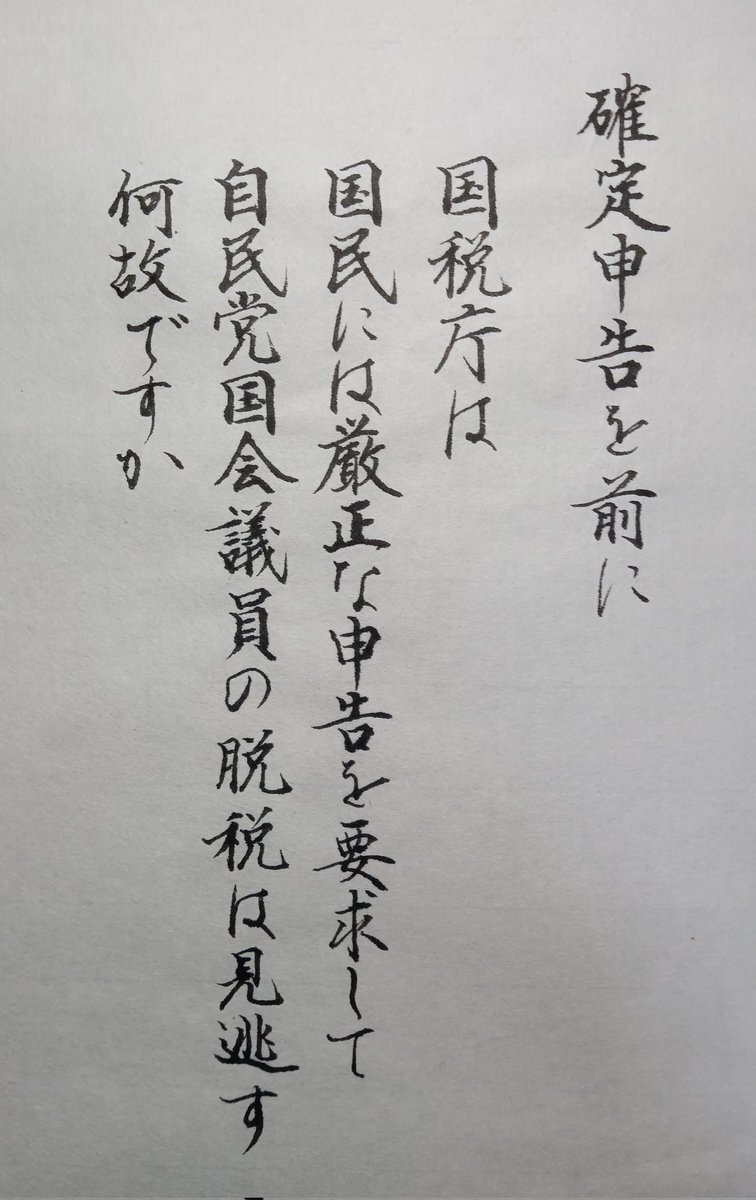 確定申告を前に
国税庁は
国民には厳正な申告を要求して
自民党国会議員の脱税は見逃す
何故ですか